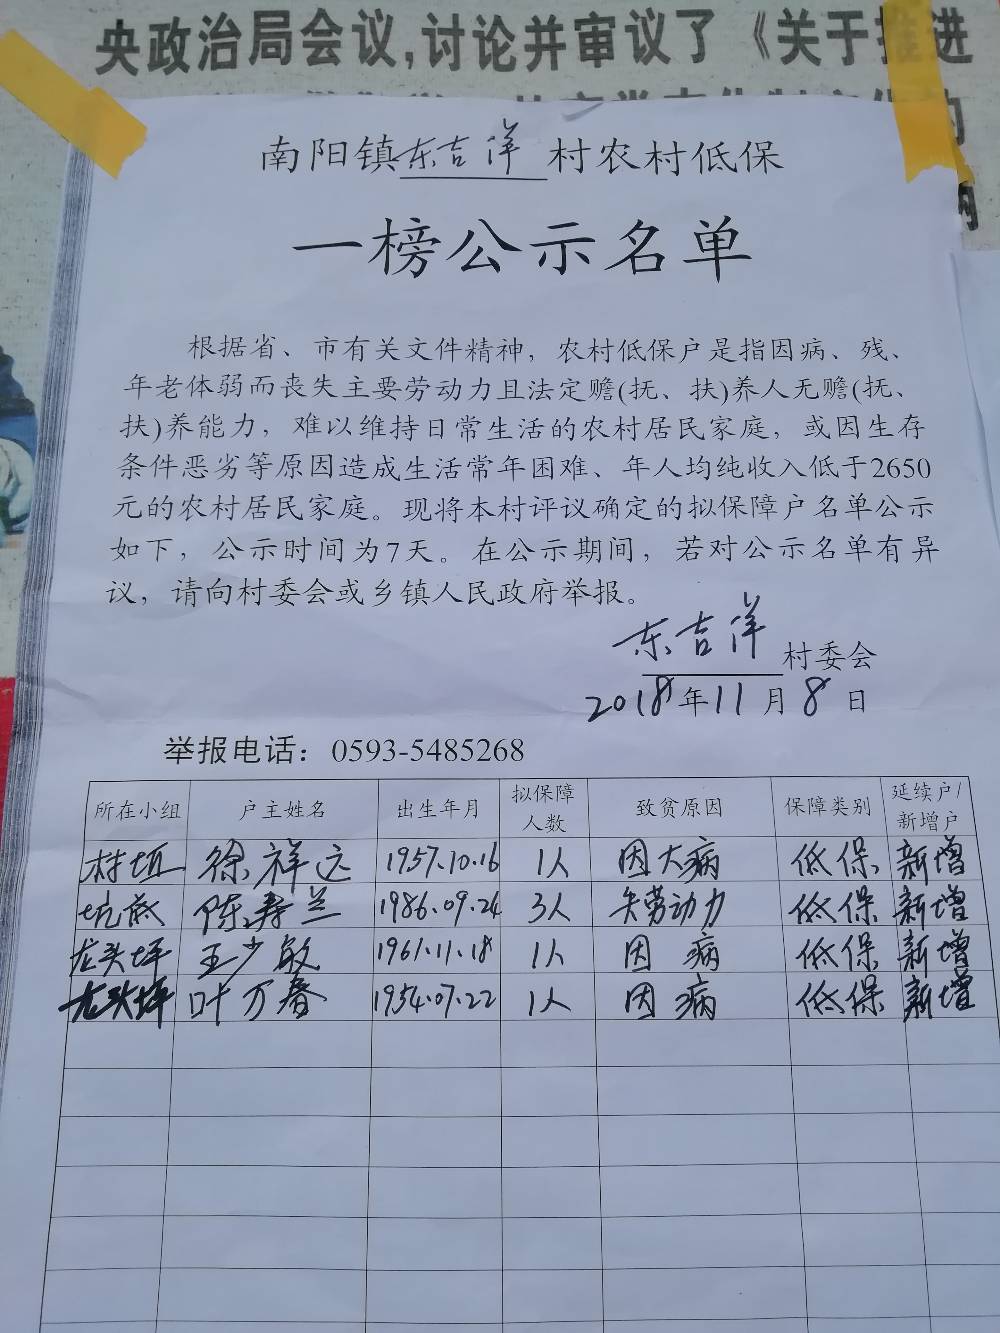 央政治局会议,讨论并审议了《关于推进
南阳镇东吉洋村农村低保
一榜公示名单
根据省、市有关文件精神，农村低保户是指因病、残、
年老体弱而丧失主要劳动力且法定赡(抚、扶)养人无赡(抚、
扶)养能力，难以维持日常生活的农村居民家庭，或因生存
条件恶劣等原因造成生活常年困难、年人均纯收入低于2650
元的农村居民家庭。现将本村评议确定的拟保障户名单公示
如下，公示时间为7天。在公示期间，若对公示名单有异
议，请向村委会或乡镇人民政府举报。
东吉洋村委会
2018年11月8日
举报电话：0593-5485268
所在小组 户主姓名 出生年月 拟保障人数 致贫原因 保障类别 延续户/新增户
村垣 徐祥远 1957.10.16 1人 因大病 低保 新增
坑底 陈寿兰 1986.09.24 3人 失劳动力 低保 新增
龙头坪 王少敏 1961.11.18 1人 因病 低保 新增
龙头坪 叶万春 1954.07.22 1人 因病 低保 新增